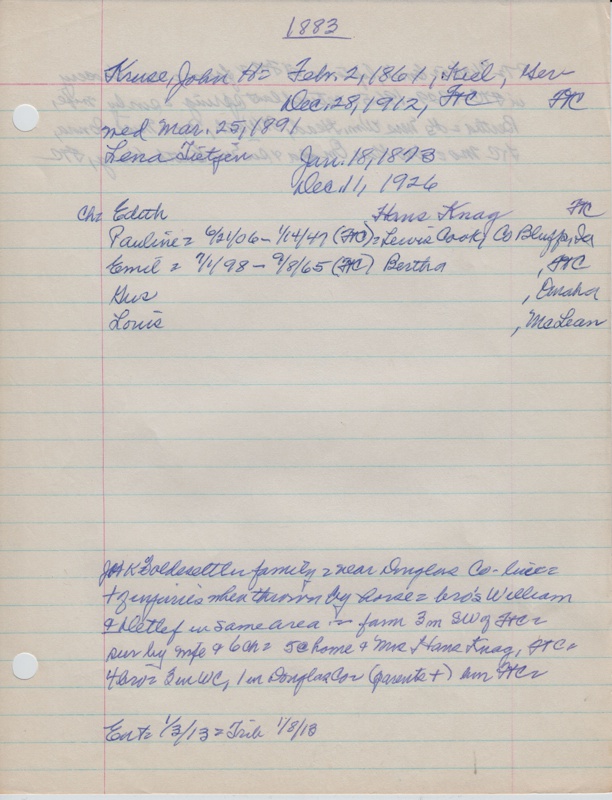 1883
Kruse, John H= Febr. 2, 1861, Kiel, Ger
Dec. 28, 1912, FC FC
med Mar. 25, 1891
Lena Tietjen Jan. 18, 1873
Dec. 11, 1926
Ch= Edith Hans Knag FC
Pauline = 6/21/06 - 1/14/47 (FC) = Lewis Cook, Co Bluffs, Ia
Emil = 7/1/98 - 9/8/65 (FC) Bertha , FC
Gus , Omaha
Louis , McLean
JHK oldsettler family = near Douglas Co-line =
+ injuries when thrown by horse = bro's William
& Detlef in same area = farm 3m SW of FC =
sur by wife & 6 ch = 5 @ home & Mrs Hans Knag, FC =
4 bro = 3 in WC, 1 in Douglas Co = (parents +) bur FC =
Ent = 1/3/13 = Trib 1/8/13